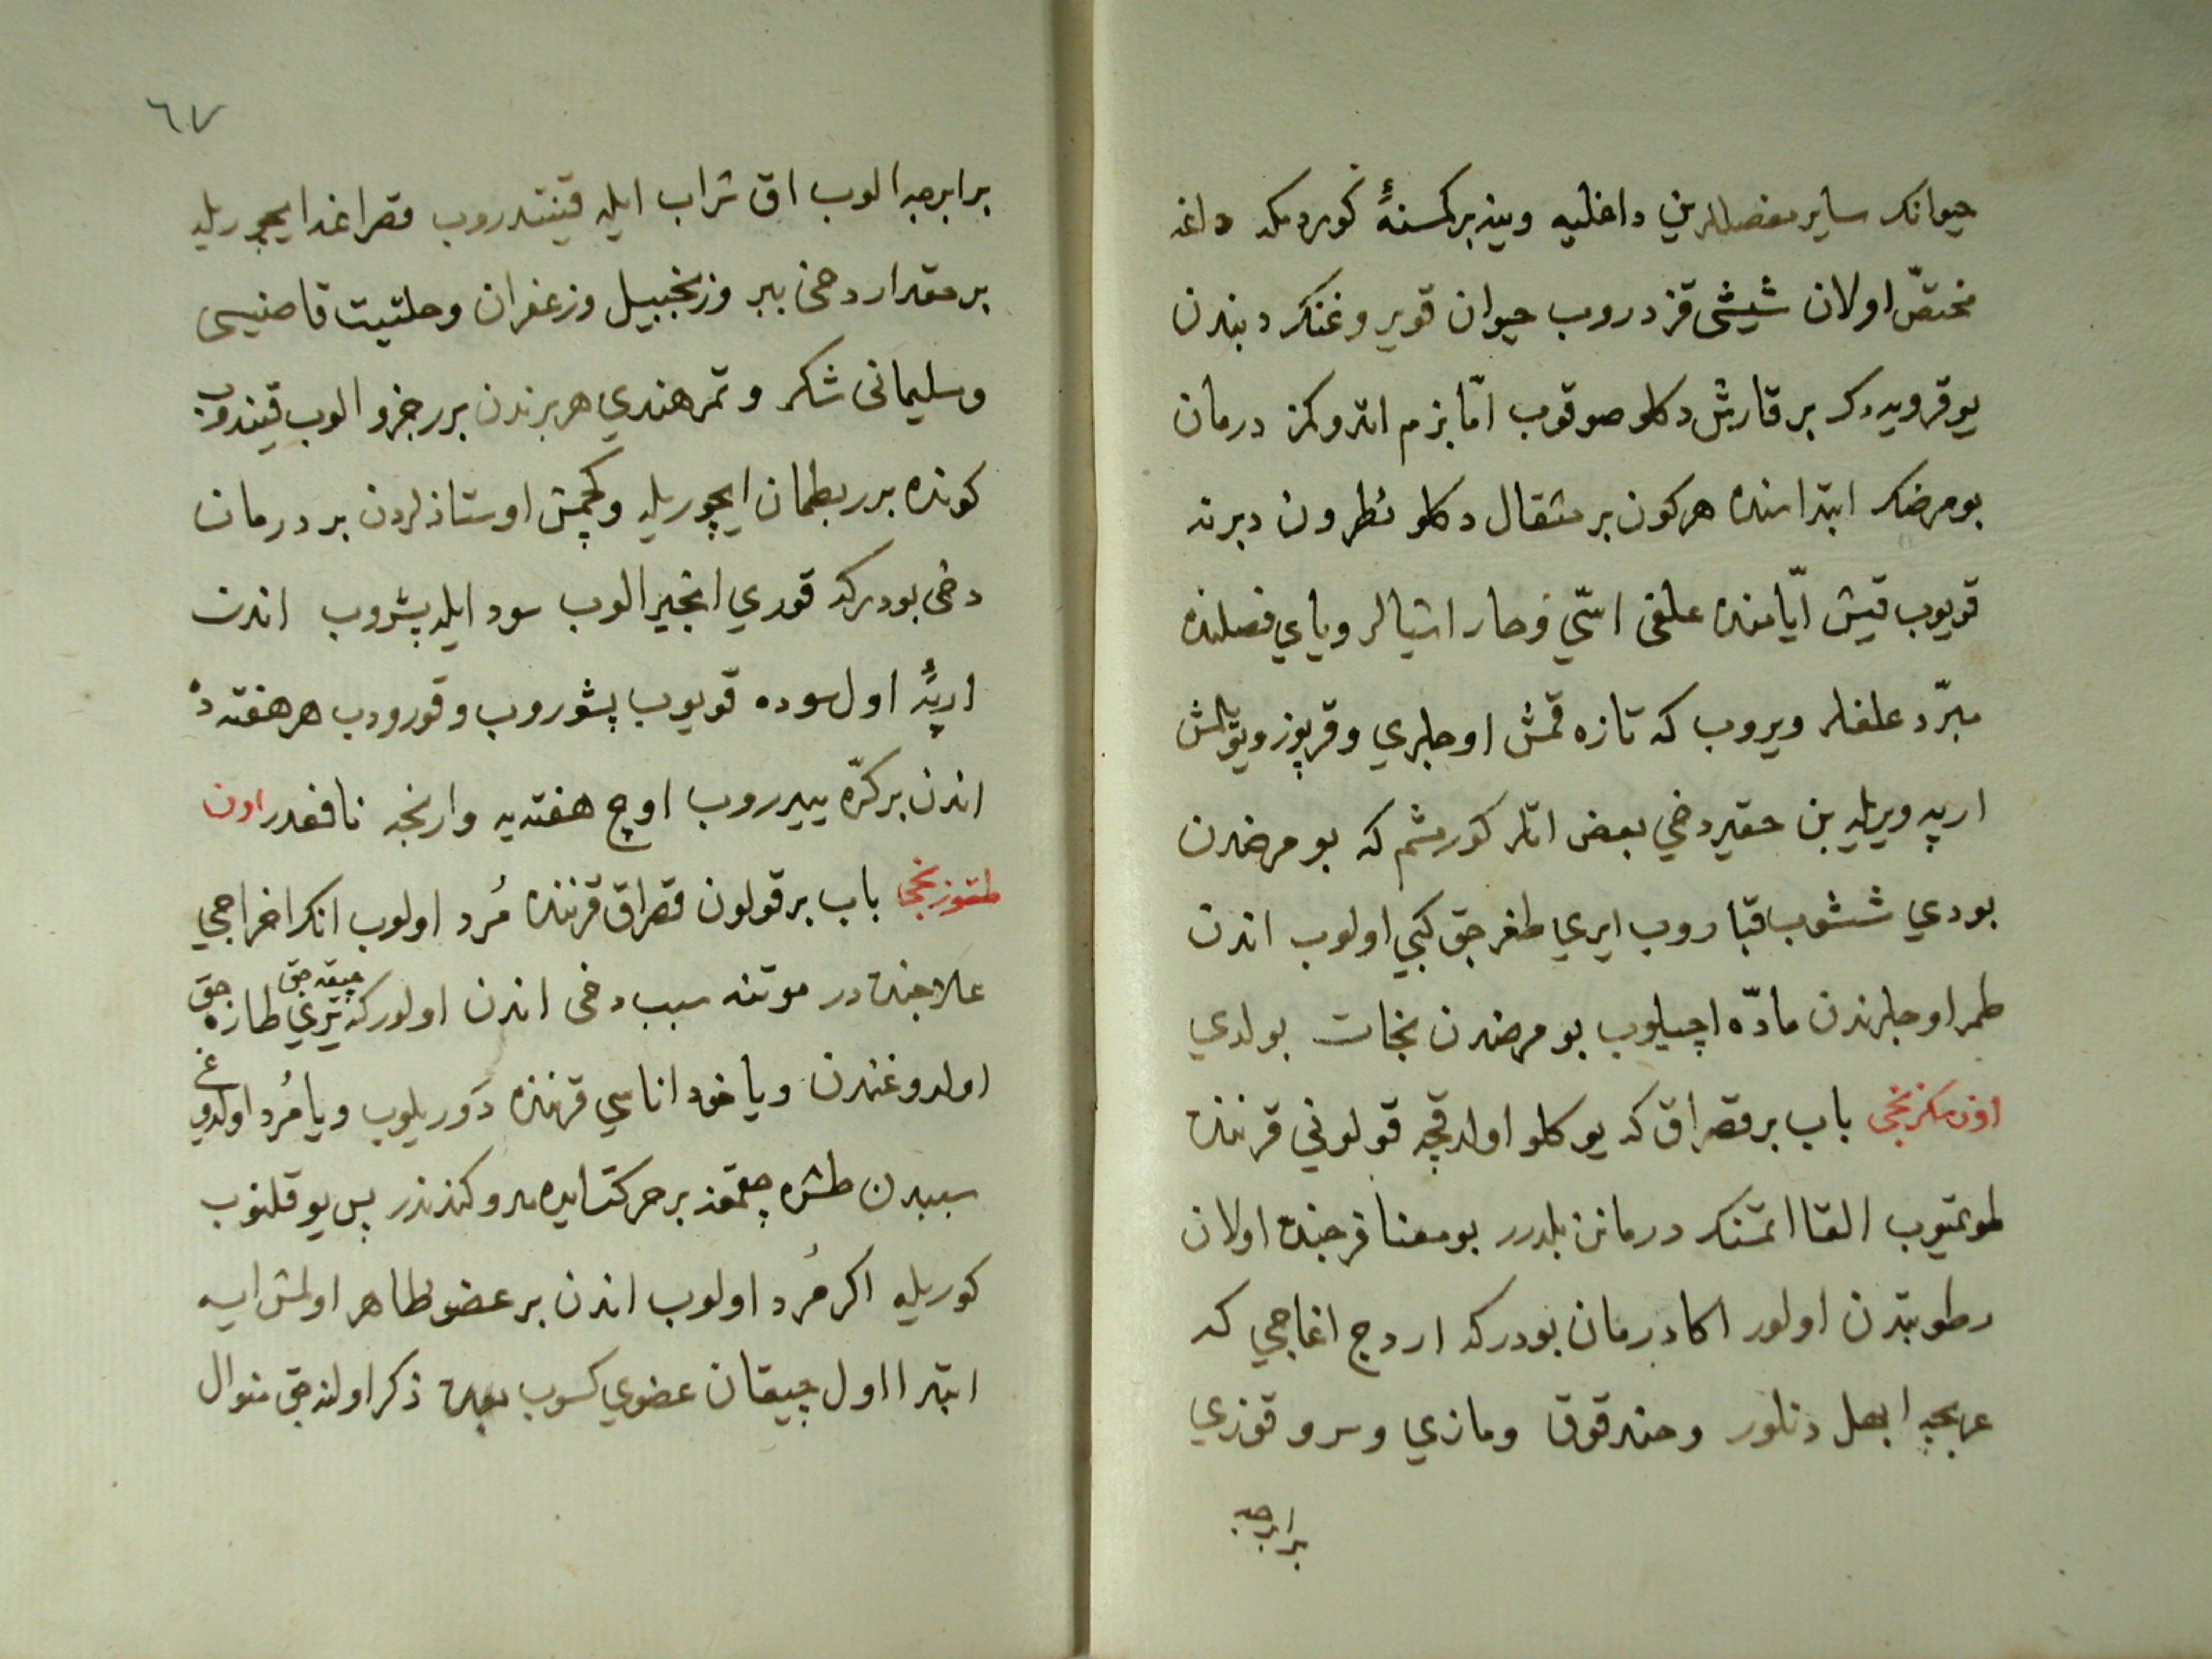 حیوانک سایر مفصللرین داغلیه وینه بر کمسنه کوردمکه داغه
مختصّ اولان شیشی قزدروب حیوان قویروغنک دبندن
یوقرویه دک بر قارش دکلو صوقوب امّا بزم اتدوکمز درمان
بو مرضک ابتداسنده هر کون بر مثقال دکلو نطرون دبرنه
قویوب قیش ایّامنده علفی اسّی و حار اشیالر ویاي فصلنده
مبرّد علفلر ویروب که تازه قمش اوجلري وقرپوز
ارپه ویریله بن حقیر دخي بعض اتلر کورمشم که بو مرضدن
بودي ششوب قباروب ایري طغرجق کبي اولوب اندن
طمر اوجلرندن مادّه اچیلوب بو مرضدن نجات بولدي
اون سکزنجی باب بر قصراق که یوکلو اولدقچه قولونی قرننده
طوتمیوب القا اتمنک درمانن بلدرر بو معنا فرجنده اولان
رطوبتدن اولور اکا درمان بودرکه اردج اغاجي که
عربجه ابهل دنلور وحندقوق ومازي وسرو قوزي
برابرجه
٦٧
برابرجه الوب اق شراب ایله قیندروب قصراغه ایچوریله
بر مقدار دخی ببر وزنجبیل وزعفران وحلتیت قاصنیسی
وسلیمانی شکر وتمر هندي هر برندن برر جزو الوب قیندوب
کونده برر بطمان ایچوریله وکچمش اوستاذلردن بر درمان
دخی بودرکه قوري انجیر الوب سود ایله پشوروب اندن
ارپه اول سوده قویوب پشوروب وقورودب هر هفته ده
اندن بر کرّه ییدروب اوچ هفته یه وارنجه نافعدر اون
طقوزنجی باب بر قولون قصراق قرننده مُرد اولوب انک اخراجي
علاجنده در موتنه سبب دخی اندن اولورکه چیقه جق یري طارجق
اولدوغندن ویا خود اناسي قرننده دَوریلوب ویا مُرد اولدوغي
سببدن طشره چقمغه بر حرکت ایده مدوکندندر پس یوقلنوب
کوریله اکر مُرد اولوب اندن بر عضو ظاهر اولمش ایسه
ابتدا اول چیقان عضوي کسوب بعده ذکر اولنه جق منوال